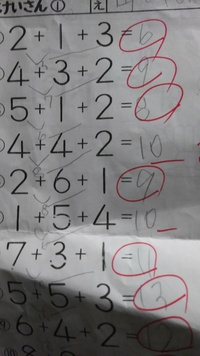 けいさん①
2+1+3=6
4+3+2=9
5+1+2=8
4+4+2=10
2+6+1=9
1+5+4=10
7+3+1=11
5+5+3=13
6+4+2=12